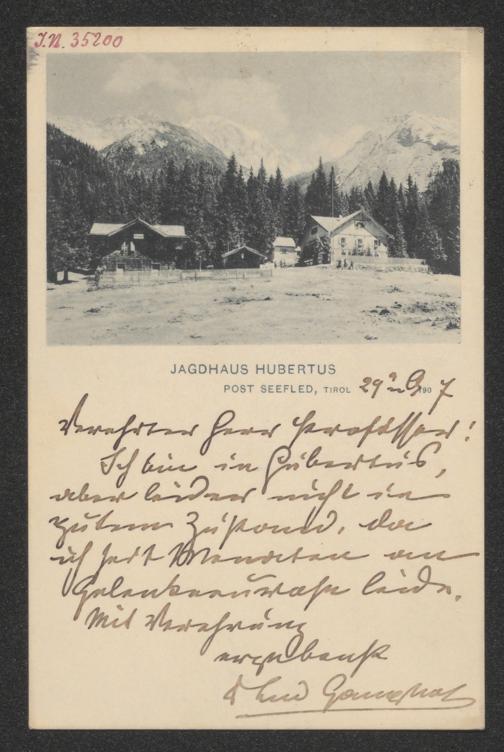 I.N. 35200
JAGDHAUS HUBERTUS
POST SEEFLED, TIROL 29 190 7
Verehrter Herr Professor!
Ich bin in Hubertus,
aber leider nicht in
gutem Zustand, da
ich seit Monaten an
Gelenkrheuma leide.
Mit Verehrung
ergebenst
Ganghofer